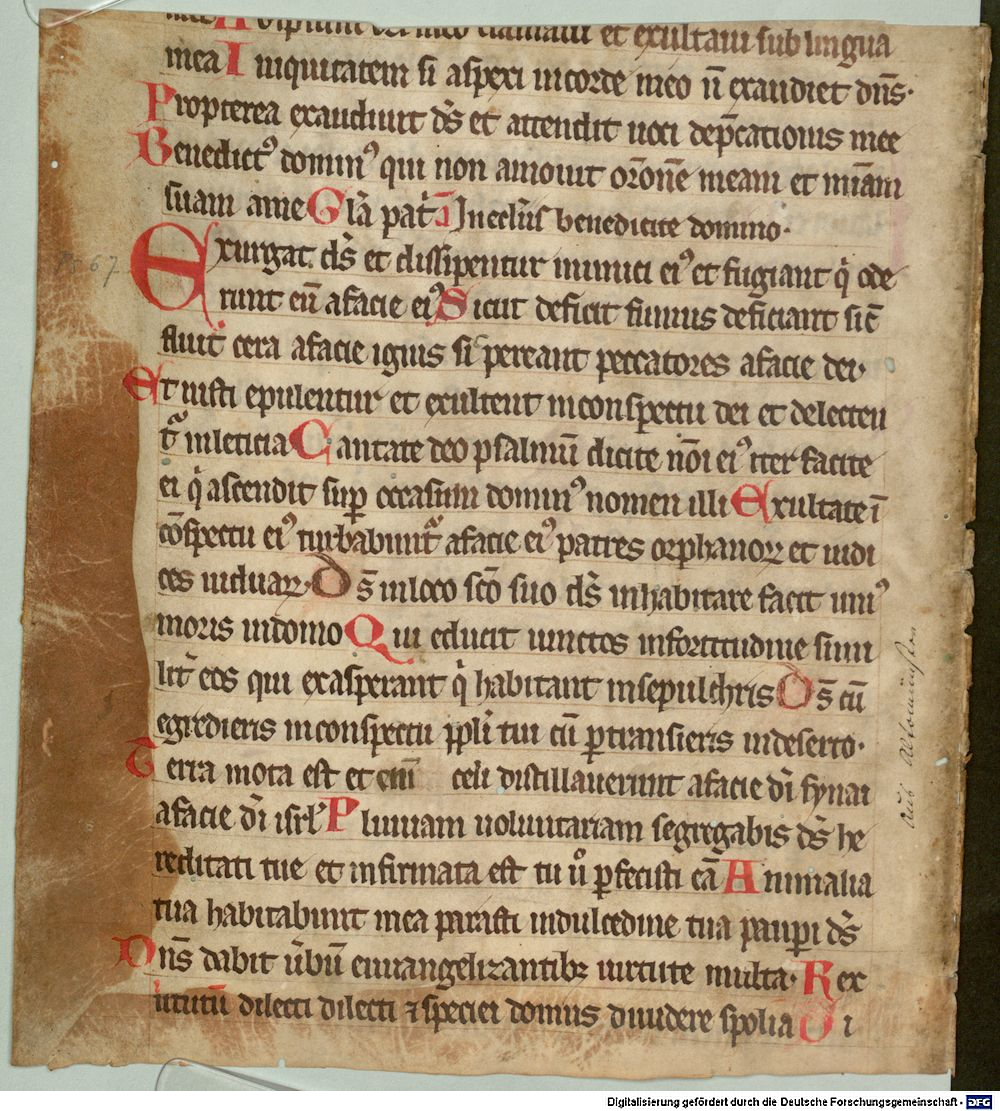 mee Ad ipsum ore meo clamaui et exultaui sub lingua
mea Iniquitatem si aspexi in corde meo ñ exaudiet dñs·
Propterea exaudiuit ds̄ et attendit uoci dep̄cationis mee
Benedictꝰ dominꝰ qui non amouit or̄onē meam et mīam
suam a me Gl̄a pat̄ A In ecclīis benedicite domino·
Exurgat ds̄ et dissipentur inimici eiꝰ et fugiant q̇ ode
Ps 67
runt eū a facie eiꝰ Sicut deficit fumus deficiant sic̄
fluit cera a facie ignis sic pereant peccatores a facie dei·
Et iusti epulentur et exultent in conspectu dei et delecten
t᷑ in leticia Cantate deo psalmū dicite nōi eiꝰ iter facite
ei q̇ ascendit sup̄ occasum dominꝰ nomen illi Exultate ī
cōspectu eiꝰ turbabunt᷑ a facie eiꝰ patres orphanoꝝ et iudi
ces uiduaꝝ· Ds̄ in loco scō suo ds̄ inhabitare facit uniꝰ
moris in domo Qui educit iunctos in fortitudine simi
lit̄ eos qui exasperant q̇ habitant in sepulchris Ds̄ cū
egredieris in conspectu ppl̄i tui cū ꝑtransieris in deserto·
Terra mota est et eni celi distillauerunt a facie dī synai
a facie dī isrl̄ Pluuiam uoluntariam segregabis ds̄ he
reditati tue et infirmata est tu u̇ ꝑfecisti eā Animalia
tua habitabunt in ea parasti in dulcedine tua pauꝑi ds̄
Dn̄s dabit u̇bū euuangelizantibꝫ uirtute multa· Rex
u̇tutū dilecti dilecti ⁊ speciei domus diuidere spolia Si
aus Altomünster
Digitalisierung gefördert durch die Deutsche Forschungsgemeinschaft - DFG